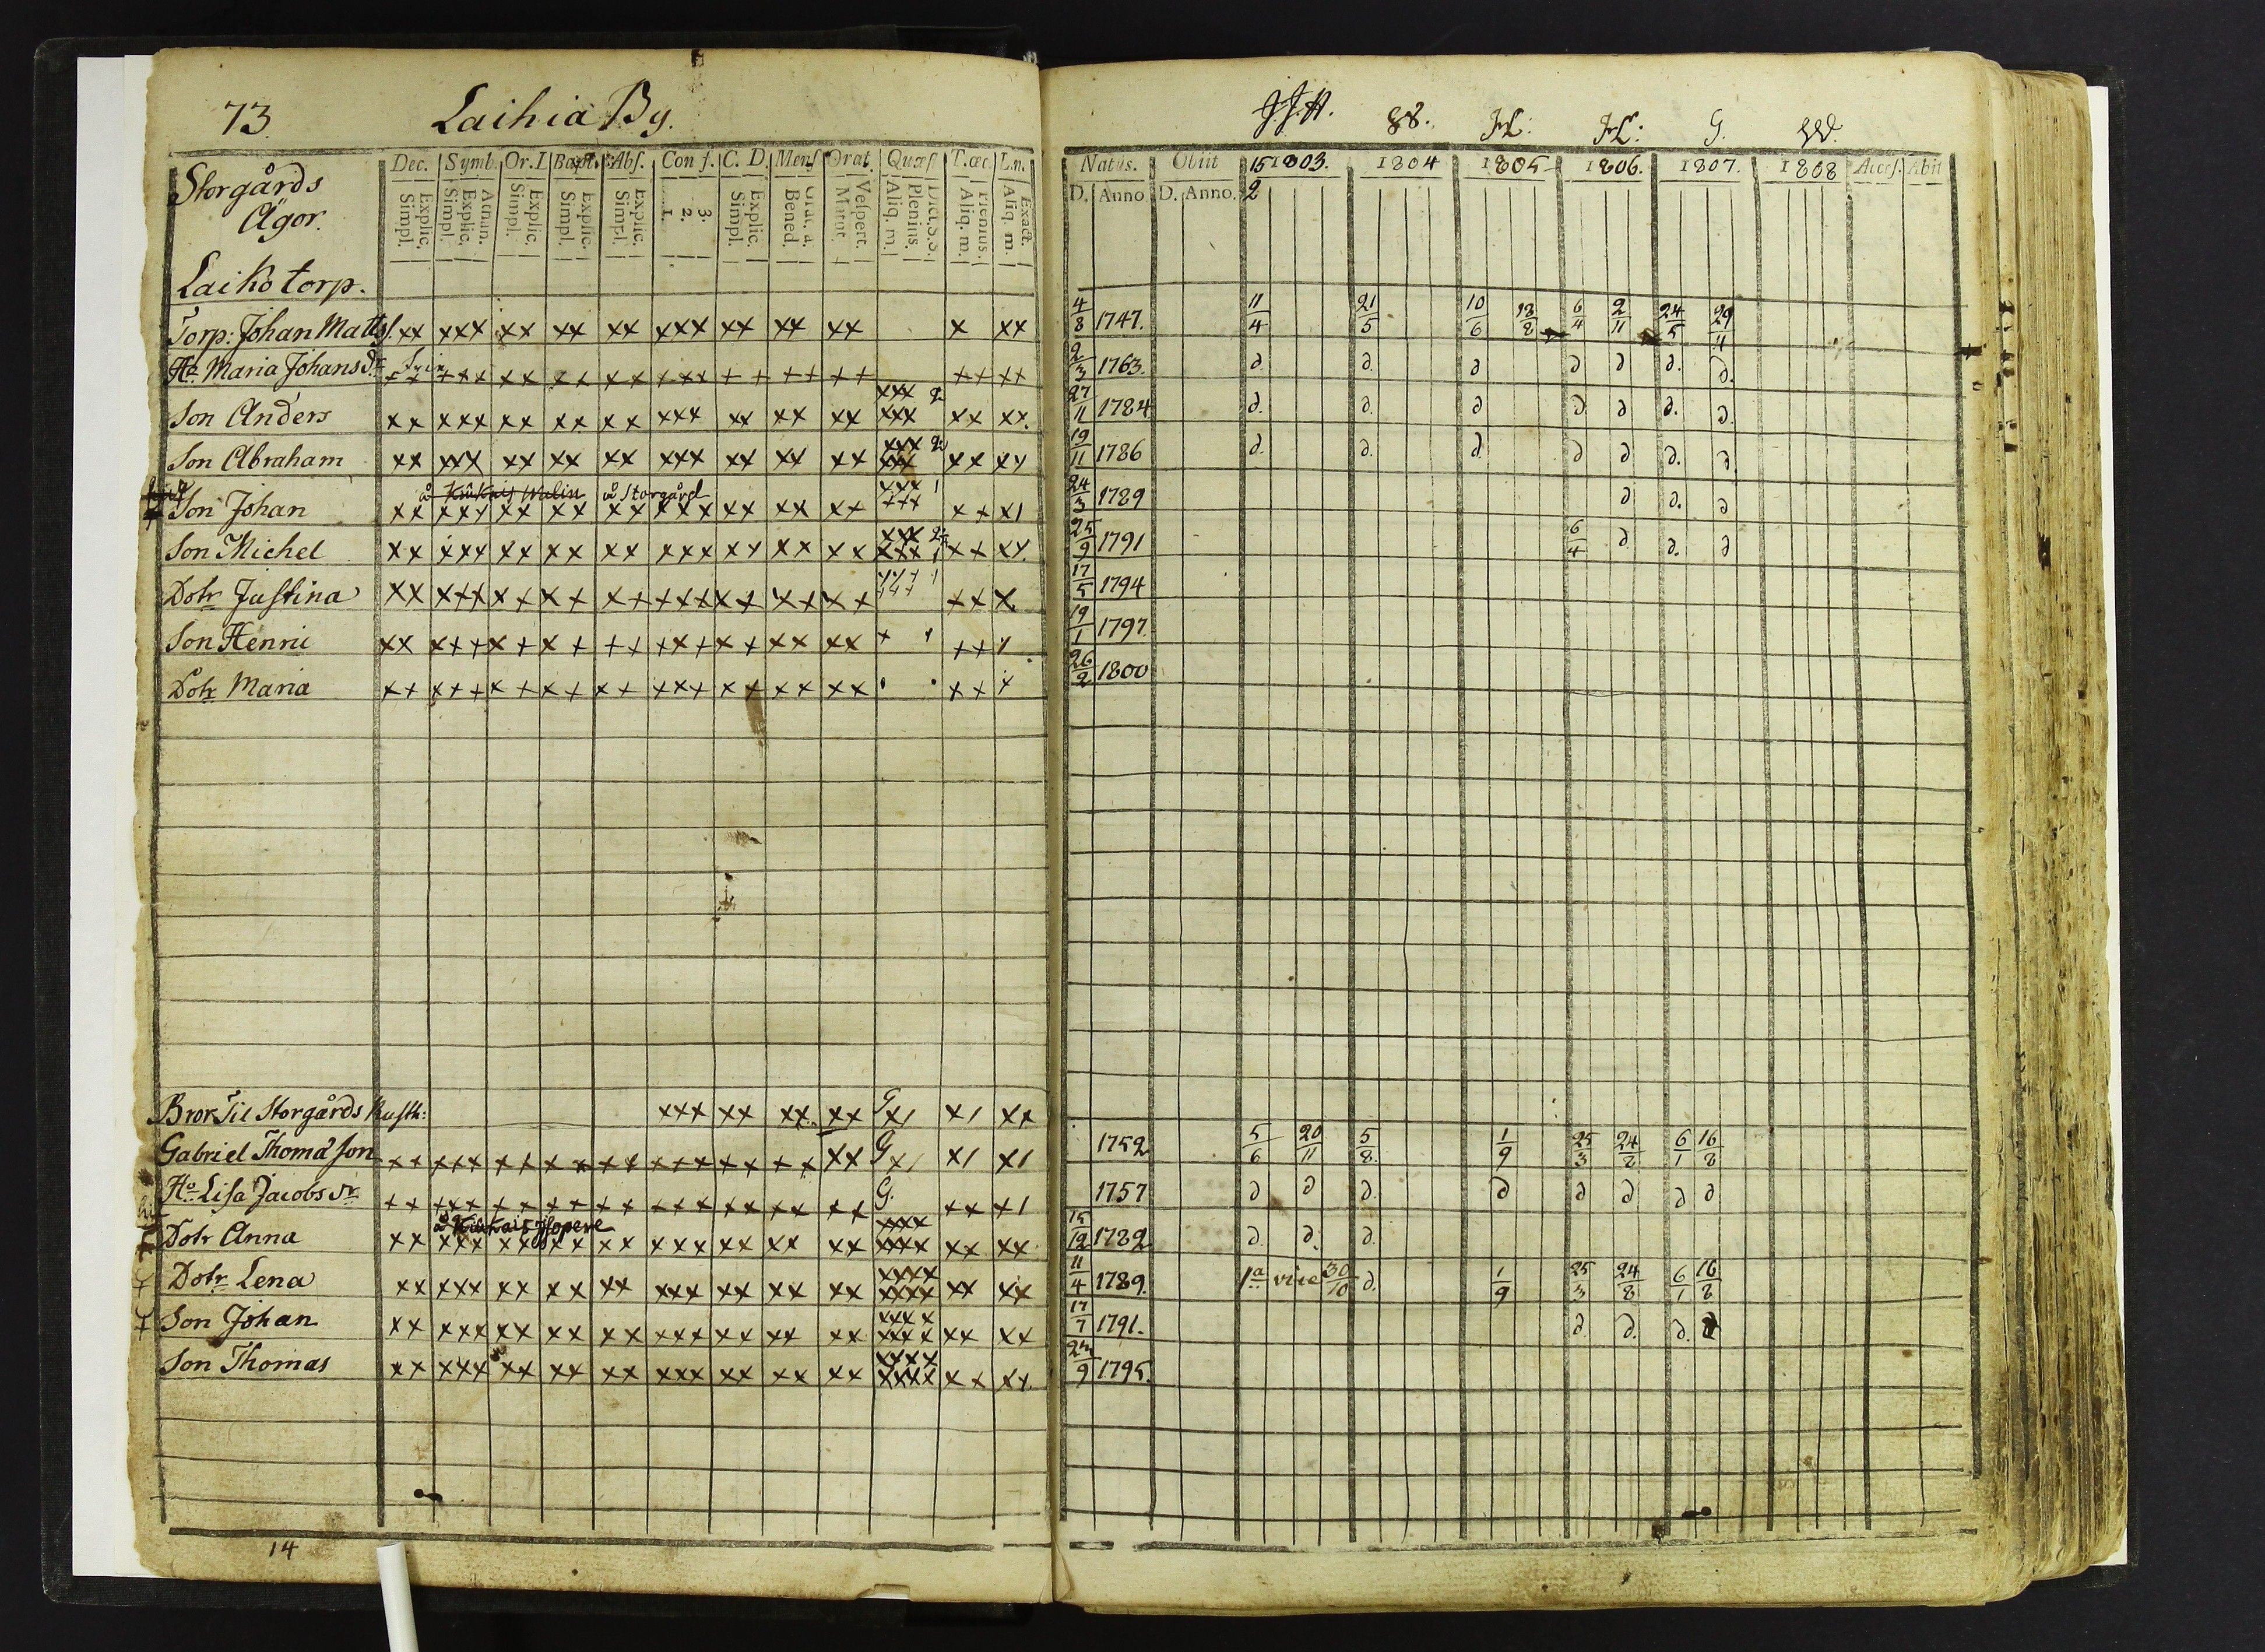 73. Laihia By.
Storgårds
Ägor.
Dec. Symb. Or.D. Bapt. Abs. Conf. C. D. Mens. Orat. Quæst. T.œc. L.n.
Explic. Simpl. Athan. Explic. Simpl. Explic. Simpl. Explic. Simpl. Explic. Simpl. 3. 2. 1. Explic. Simpl. Grat. a. Bened. Vespert. Matut. Dict.S.S. Plenius. Aliq. m. Plenius. Aliq. m. Exact. Aliq. m.
Laiko torp.
Torp: Johan Matts. xx xxx xx xx xx xxx xx xx xx x xx
Ho Maria Johansdr ++ +++ xx xx ++ +++ ++ ++ ++ ++ ++
Son Anders xx xxx xx xx xx xxx xx xx xx xxx 2 xxx xx xx.
Son Abraham xx xxx xx xx xx xxx xx xx xx xxx 2 xxx xx xx
å Storgård
Son Johan xx xxx xx xx xx xxx xx xx x+ xxx 1 +++ x+ x1
Son Michel xx xxx xx xx xx xxx xx xx xx xxx 2 xxx 1 x+ xx.
Dotr Justina xx x++ x+ x+ x+ +++ x+ x+ x+ ++ x
Son Henric xx x++ x+ x+ ++ +x+ x+ xx xx + ++
Dotr Maria x+ x++ x+ x+ x+ +x+ x+ xx xx ++ x
Bror Til Storgårds Rusth: xxx xx xx xx G x1 x1 xx
Gabriel Thomæson ++ +++ ++ ++ ++ +++ ++ ++ xx G x1 x1 x1
Ho Lisa Jacobsdr ++ +++ ++ ++ ++ +++ ++ ++ ++ G. ++ +1
Dotr Anna xx xxx xx xx xx xxx xx xx xx xxxx xxxx xx xx
Dotr Lena xx xxx xx xx xx xxx xx xx xx xxxx xxxx xx xx
Son Johan xx xxx xx xx xx xxx xx xx xx xxxx xxxx xx xx
Son Thomas xx xxx xx xx xx xxx xx xx xx xxxx xxxx xx xx.
14
J.J.H. 88. G.
Natus. Obiit 1803. 1804 1805 1806. 1807. 1808 Access. Abiit
D. Anno D. Anno. 15/2
4/8 1747. 11/4 21/5 10/6 18/8 6/4 2/11 24/5 29/11
2/3 1763. d. d. d d d d. d.
27/11 1784 d. d. d d. d d. d.
19/11 1786 d. d. d. d d d. d
24/3 1789 d d. d
25/9 1791 6/4 d d. d
17/5 1794
19/1 1797.
26/2 1800
1752 5/6 20/11 5/8. 1/9 25/3 24/8 6/1 16/8
1757 d d d. d d d d d
15/12 1782 d. d. d.
11/4 1789. 1a vice 30/10 d. 1/9 25/3 24/8 6/1 16/8
17/7 1791. d. d. d. d
1795.